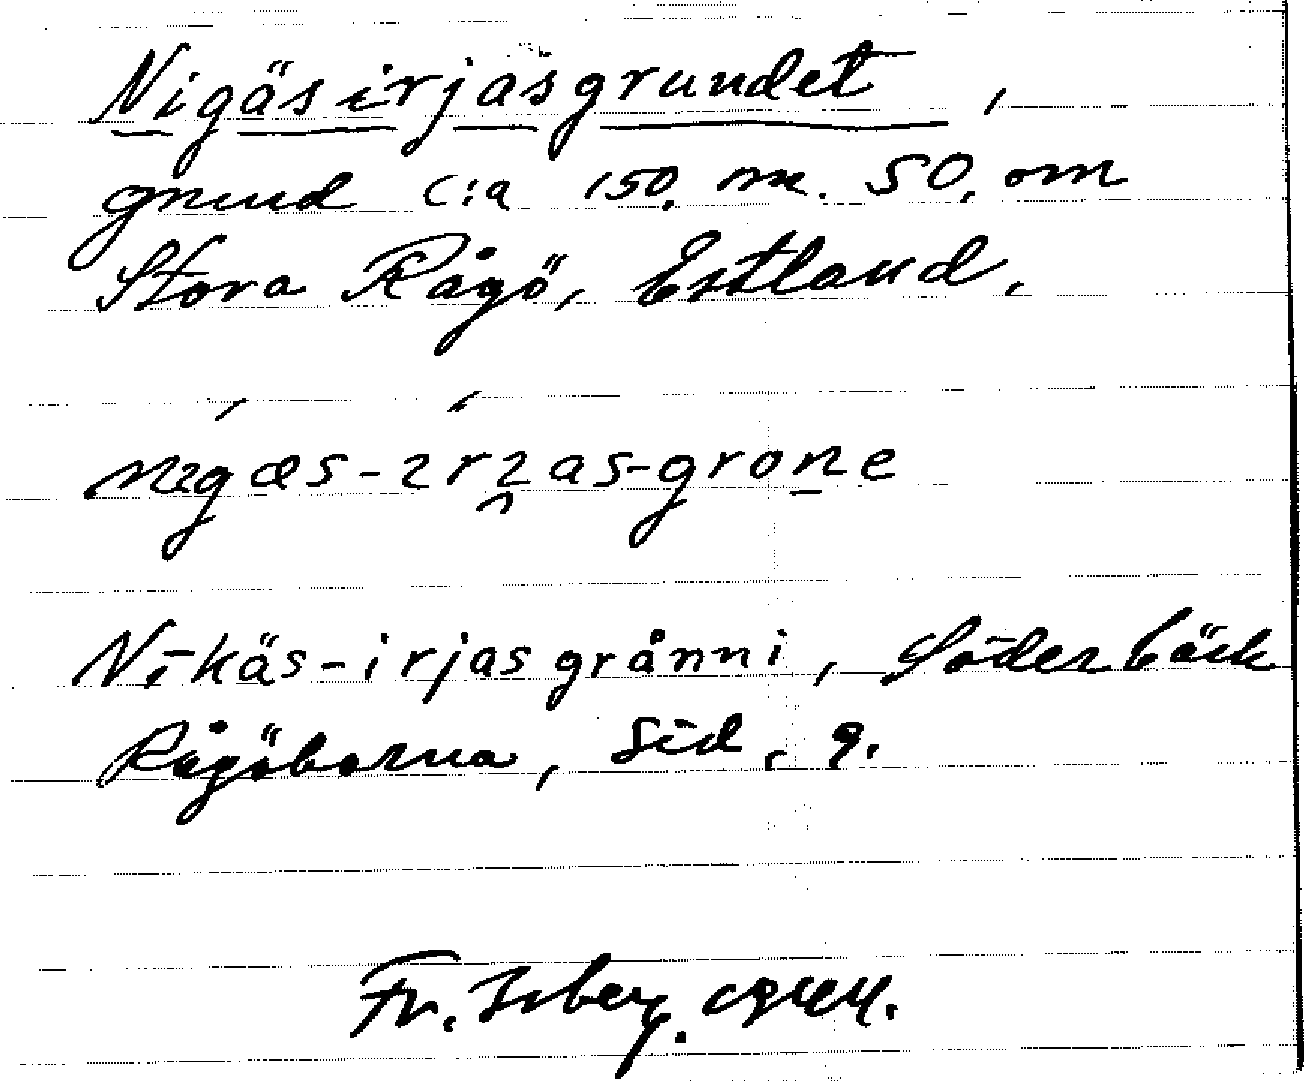 Nigäsirjasgrundet,
grund c:a 150 m. SO. om
Stora Rågö, Estland.
nıgæs-ırı̯as-grone
Nikäs-irjas grånni, Söderbäck
Rågöborna, sid. 9.
Fr. Isberg. 1944.